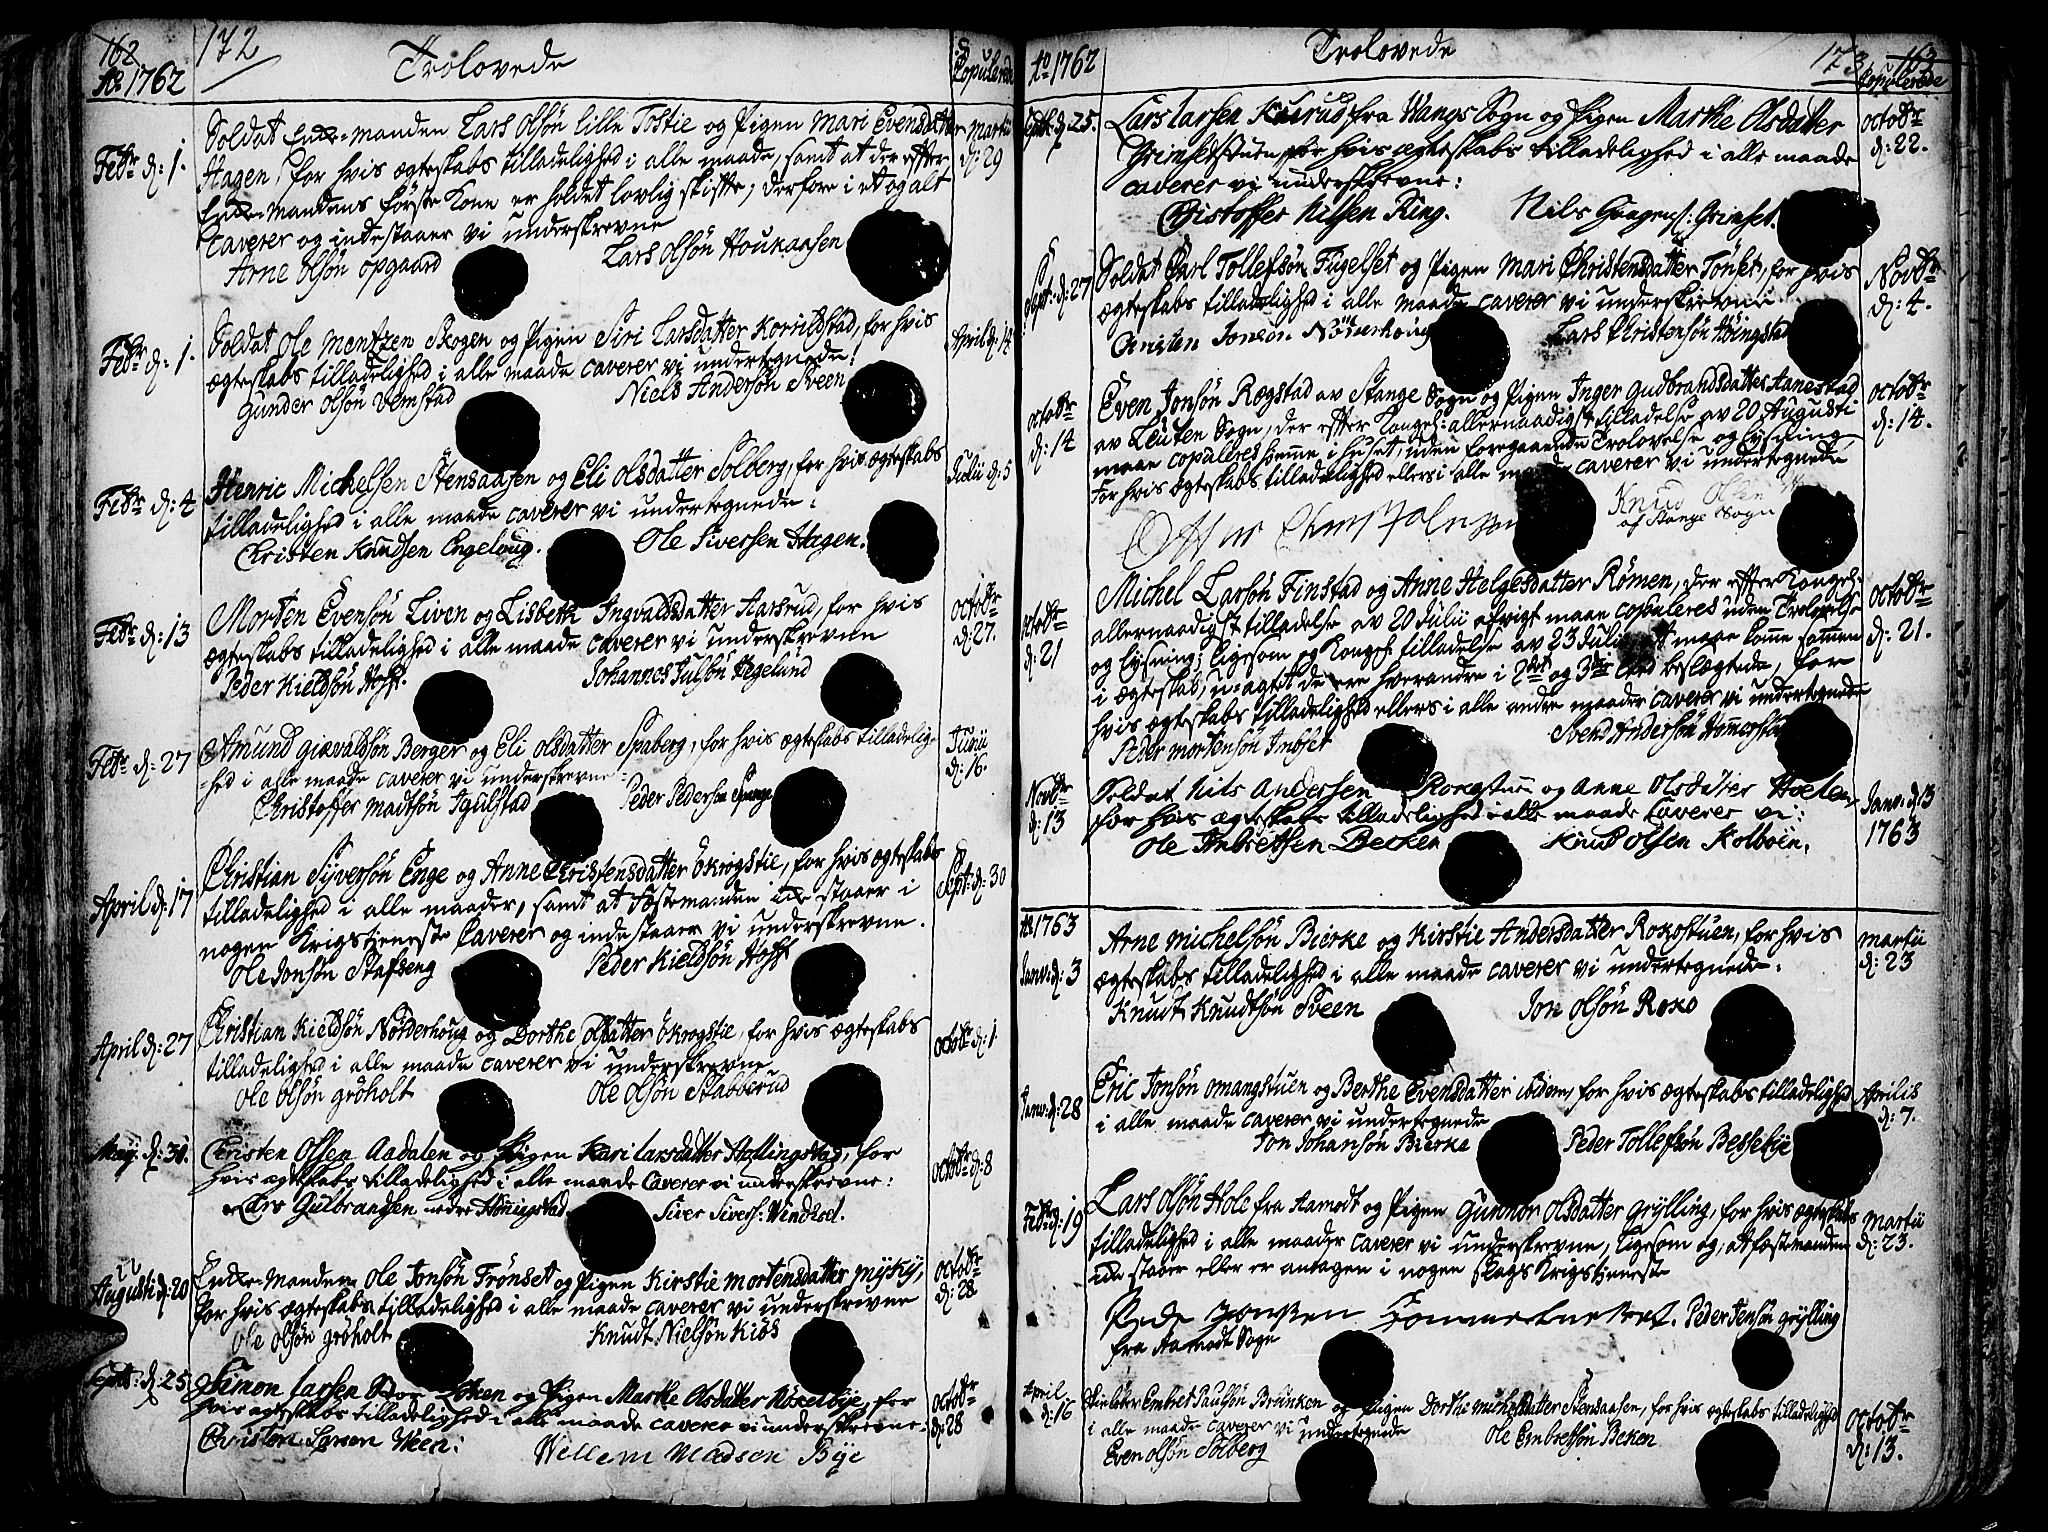 162 172 Trolovede Copulerede
Ao 1762
Soldat Enke-manden Lars Olsön Lille Tostie og Pigen Mari Evensdatter Martii
Febr d: 1. Hagen, for hvis ægteskabs tilladelighed i alle maade, samt at der efter d: 29
Enke-Mandens förste Kone er holdet lovlig skifte, derfore i et og alt
caverer og indestaaer vi underskrevne
Arne Olsön Opgaard Lars Olsön Houkaasen
Soldat Ole Mentzen Skogen og Pigen Siri Larsdatter Korrildstad, for hvis April d: 14
Febr d: 1. ægteskabs tilladelighed i alle maade caverer vi undertegnede:
Gunder Olsön Vemstad Niels Andersön Sveen
Henric Michelsen Stensaasen og Eli Olsdatter Solberg, for hvis ægteskabs Julii d: 5
Febr d: 4 tilladelighed i alle maade caverer vi undertegnede:
Christen Knudsen Engeloug. Ole Siversen Hagen.
Morten Evensön Liven og Lisbeth Ingvaldsdatter Aarsrud, for hvis octobr d: 27.
Febr d: 13 ægteskabs tilladelighed i alle maade caverer vi underskrevne
Peder Kieldsön Hoff. Johannes Julsön Hegelund
Febr d: 27 Amund Giævaldsön Berger og Eli Olsdatter Spaberg, for hvis ægteskabs tilladelig- Junii d: 16.
-hed i alle maade caverer vi underskrevne
Christoffer Madtsön Igulstad Peder Pedersen
Christian Syversön Enge og Anne Christensdatter Ökrogstie, for hvis ægteskabs
April d: 17 tilladelighed i alle maader, samt at Fæstemanden icke staaer i Sept: d: 30
nogen Krigstjeneste Caverer og indestaaer vi underskrevne.
Ole Jonsön Stafseng Peder Kieldsön Hoff
Christian Kieldsön Norderhoug og Dorthe Olsdatter Ökrogstie, for hvis ægteskabs
April d: 27 tilladelighed i alle maade caverer vi underskrevne octobr d: 1
Ole Olsön Gröholt Ole Olsön Stabberud
Maij d: 31. Christen Olsen Aadalen og Pigen Kari Larsdatter Hollingstad, for
hvis ægteskabs tilladelighed i alle maade Caverer vi underskrevne: octobr d: 8
Lars Gulbrandsen nedre Höningstad Siver Sivers: Vindset.
22
Augusti d: 20 Enke-Manden Ole Jonsön Frönset og Pigen Kirstie Mortensdatter Myky, octobr d: 28
for hvis ægteskabs tilladelighed i alle maade caverer vi underskrevne
Ole Olsön Gröholt Knudt Nielsön Kiös
Sept: d: 25 Simon Larsen Stor Löken og Pigen Marthe Olsdatter Noxelbye, for octobr d: 28
hvis ægteskabs tilladelighed i alle maade caverer vi underskrevne
Christen Larsen Veen: Willem Madsen Bye
Ao 1762 Trolovede 173 163 Copulerede
Sept: d: 25. Lars Larsen Kusrud fra Wangs Sogn og Pigen Marthe Olsdatter octobr d: 22.
Grimsetstuen for hvis ægteskabs tilladelighed i alle maade
caverer vi underskrevne:
Christoffer Nilsen Ring. Nils Gaagens: Grimset.
Sept: d: 27 Soldat Carl Tollefsön Fugelset og Pigen Mari Christensdatter Tönset, for hvis Novbr d: 4.
ægteskabs tilladelighed i alle maade caverer vi underskrevne
Christen Jonsön Norderhoug Lars Christensön Höingstad
octobr d: 14 Even Jonsön Rogstad av Stange Sogn og Pigen Inger Gudbrandsdatter Aanestad octobr d: 14.
av Leuten Sogn, der efter Kongel: allernaadigste tilladelse av 20 Augusti
maae copuleres hiemme i huset, uden foregaaende Trolovelse og Lysning
for hvis ægteskabs tilladelighed ellers i alle maade caverer vi undertegnede
Knud Olsen
af Stange Sogn
octobr d: 21 Michel Larsön Finstad og Anne Helgesdatter Römen, der efter Kongel: octobr d: 21.
allernaadigst tilladelse av 20 Julii afvigt maae copuleres uden Trolovelse
og Lysning; ligesom og Kongel: tilladelse av 23 Julii maae komme sammen
i ægteskab, u-agtet de ere hverandre i 2det og 3die Led beslægtede, for
hvis ægteskabs tilladelighed ellers i alle andre maader caverer vi undertegnede
Peder Mortensön Imbset Svend Andersön Hommerstad
Novbr d: 13 Soldat Nils Andersen Roxostuen og Anne Olsdatter Hoelen, Janv: d 13
for hvis ægteskabs tilladelighed i alle maade Caverer vi: 1763
Ole Embretsen Becken Knud Olsen Kolboen.
Ao 1763
Janv: d: 3 Arne Michelsön Bierke og Kirstie Andersdatter Roxostuen, for hvis Martii d: 23
ægteskabs tilladelighed i alle maade caverer vi undertegnede.
Knudt Knudtsön Sveen Jon Olsön Roxo
Janv: d: 28 Eric Jonsön Omangstuen og Berthe Evensdatter ibidem, for hvis ægteskabs tilladelighed Aprilis d: 7.
i alle maade caverer vi undertegnede
Jon Johansön Bierke Peder Tollefsön Bessebye
Febr d: 19 Lars Olsön Hole fra Aamodt og Pigen Gunnor Olsdatter Grylling, for hvis ægteskabs Martii d: 23.
tilladelighed i alle maader caverer vi underskrevne, ligesom og, at fæstemanden
icke staaer eller er antagen i nogen slags Krigstjeneste
Peder Jensön Grylling
fra Aamodt Sogn
April d: 16 Embret Paulsön Brænken og Pigen Dorthe Michelsdatter Stensaasen, for hvis ægteskabs tilladelighed octobr d: 13.
i alle maade caverer vi undertegnede
Even Olsön Solberg Ole Embretsön Beken